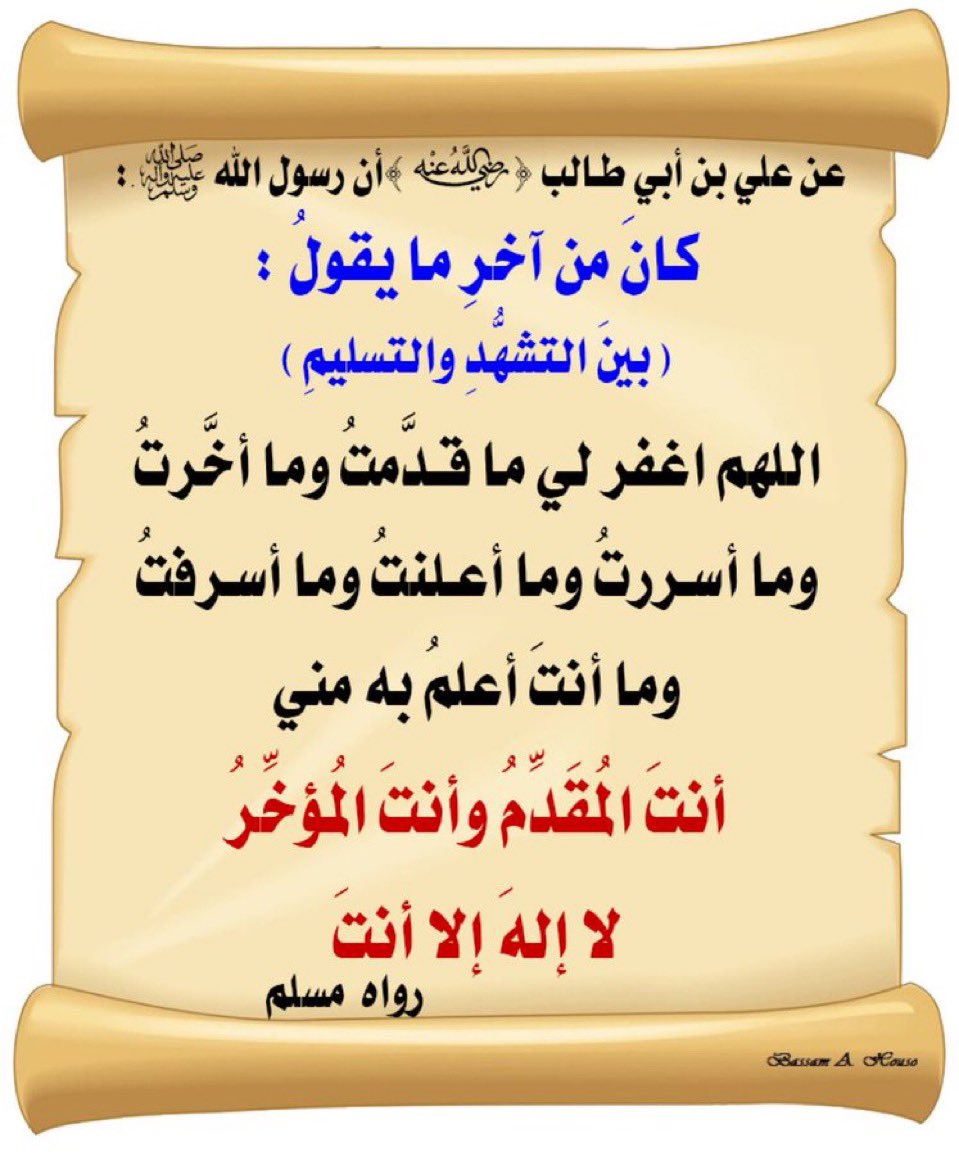 عن علي بن أبي طالب ﴿رضي الله عنه﴾ أن رسول الله ﷺ :
كانَ من آخرِ ما يقولُ :
( بينَ التشهُّدِ والتسليمِ )
اللهم اغفر لي ما قدَّمتُ وما أخَّرتُ
وما أسررتُ وما أعلنتُ وما أسرفتُ
وما أنتَ أعلمُ به مني
أنتَ المُقَدِّمُ وأنتَ المُؤخِّرُ
لا إلهَ إلا أنتَ
رواه مسلم
Bassam A. Houso